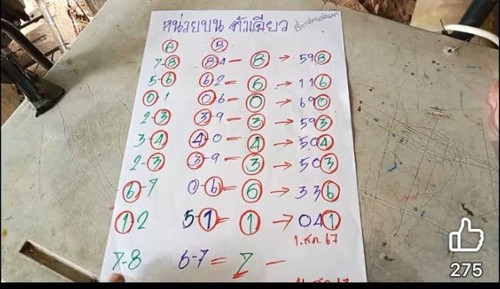 หน่วยบน ตัวเดียว
A B
7-8 84 - 8 → 598
5-6 62 = 6 → 116
01 06 - 0 → 690
2-3 3-9 - 3 → 593
3-4 4-0 - 4 → 504
2-3 3-9 = 3 → 503
6-7 0-6 = 6 → 336
12 5-1 = 1 → 041
1.ส.ค. 67
7-8 6-7 = 7 -
275